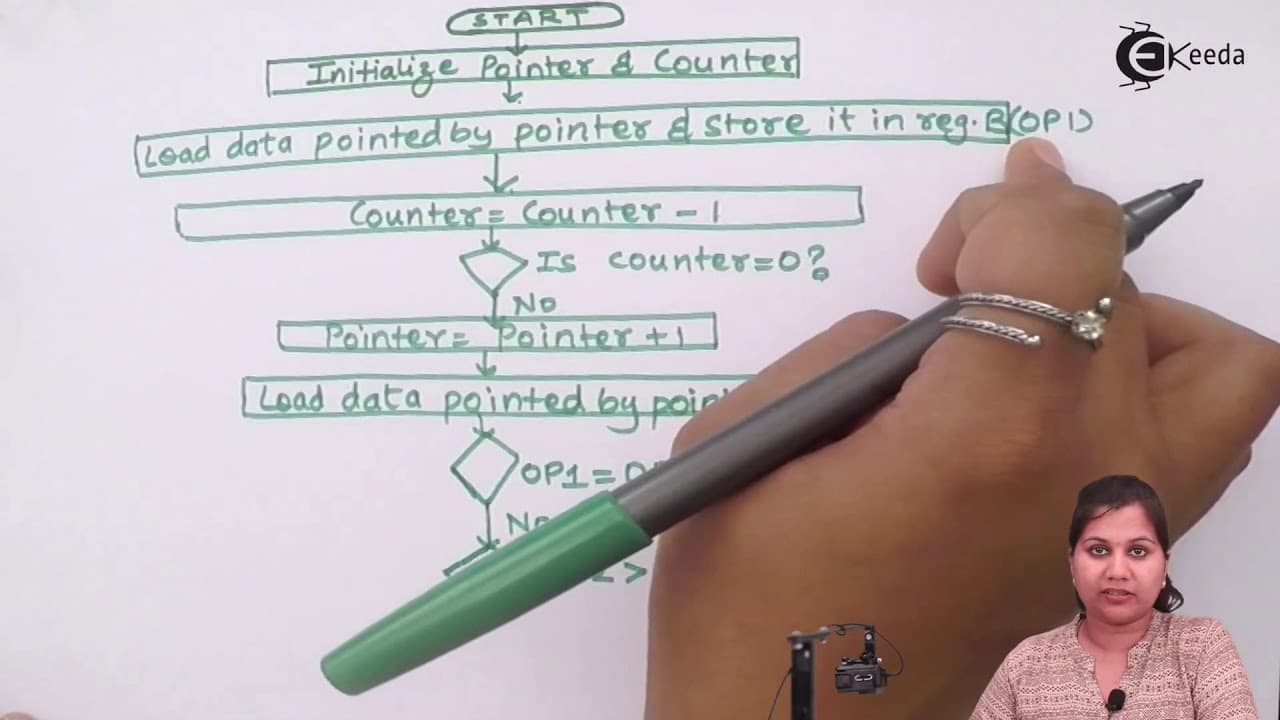 START
Initialize Pointer & Counter
Load data pointed by pointer & store it in reg.B(OP1)
Counter = Counter - 1
Is counter=0?
No
Pointer = Pointer + 1
Load data pointed by
OP1 =
No
>
EKeeda